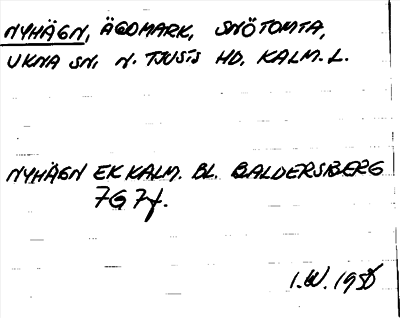 NYHÄGN, ÄGOMARK, SNÖTOMTA,
UKNA SN, N. TJUSTS HD, KALM. L.
NYHÄGN EK KALM. BL. BALDERSBERG
7G 7f.